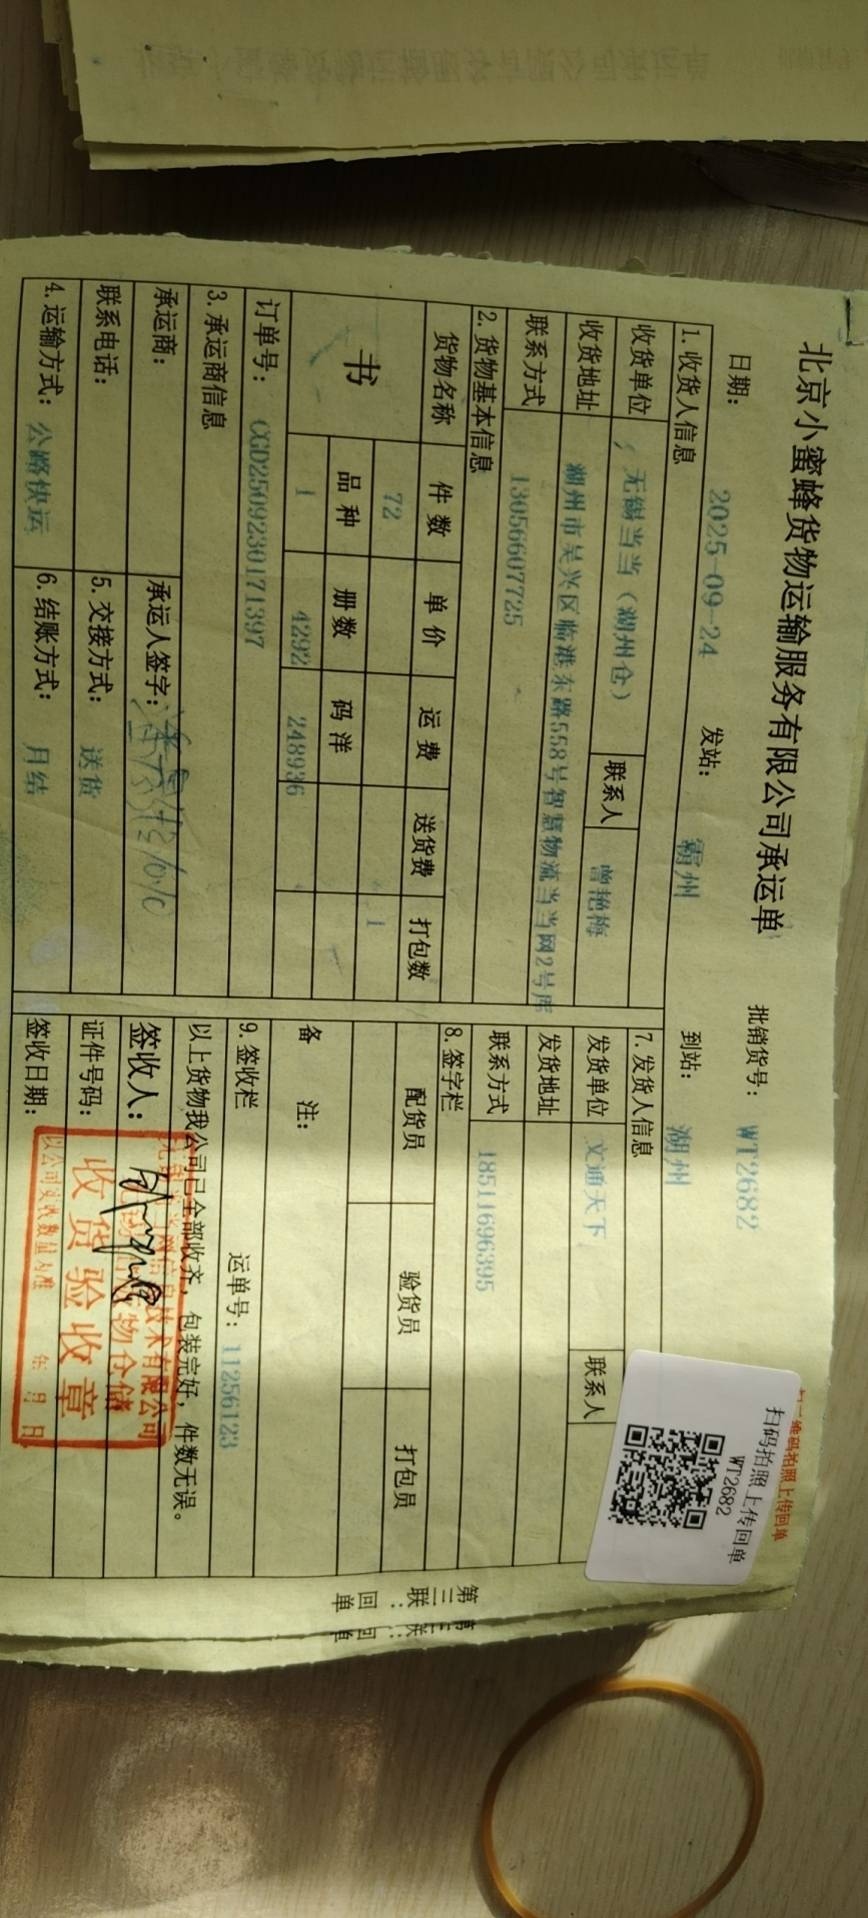 北京小蜜蜂货物运输服务有限公司承运单
批销货号: WT2682
日期: 2025-09-24 发站: 霸州 到站: 湖州
扫码拍照上传回单
WT2682
1.收货人信息
收货单位 无锡当当(湖州仓) 联系人 曾艳梅
收货地址 湖州市吴兴区临港东路558号智慧物流当当网2号库
联系方式 13056607725
2.货物基本信息
货物名称 件数 单价 运费 送货费 打包数
书 72 1
品种 册数 码洋
1 4292 248936
订单号: CGD2509230171397
3.承运商信息
承运商: 承运人签字:
联系电话: 5.交接方式: 送货
4.运输方式: 公路快运 6.结账方式: 月结
7.发货人信息
发货单位 文通天下 联系人
发货地址
联系方式 18511696395
8.签字栏
配货员 验货员 打包员
备 注:
9.签收栏 运单号: 11256123
以上货物我公司已全部收齐,包装完好,件数无误。
签收人:
证件号码:
签收日期:
收货验收章
以公司实收数量为准 年 月 日
第三联:回单